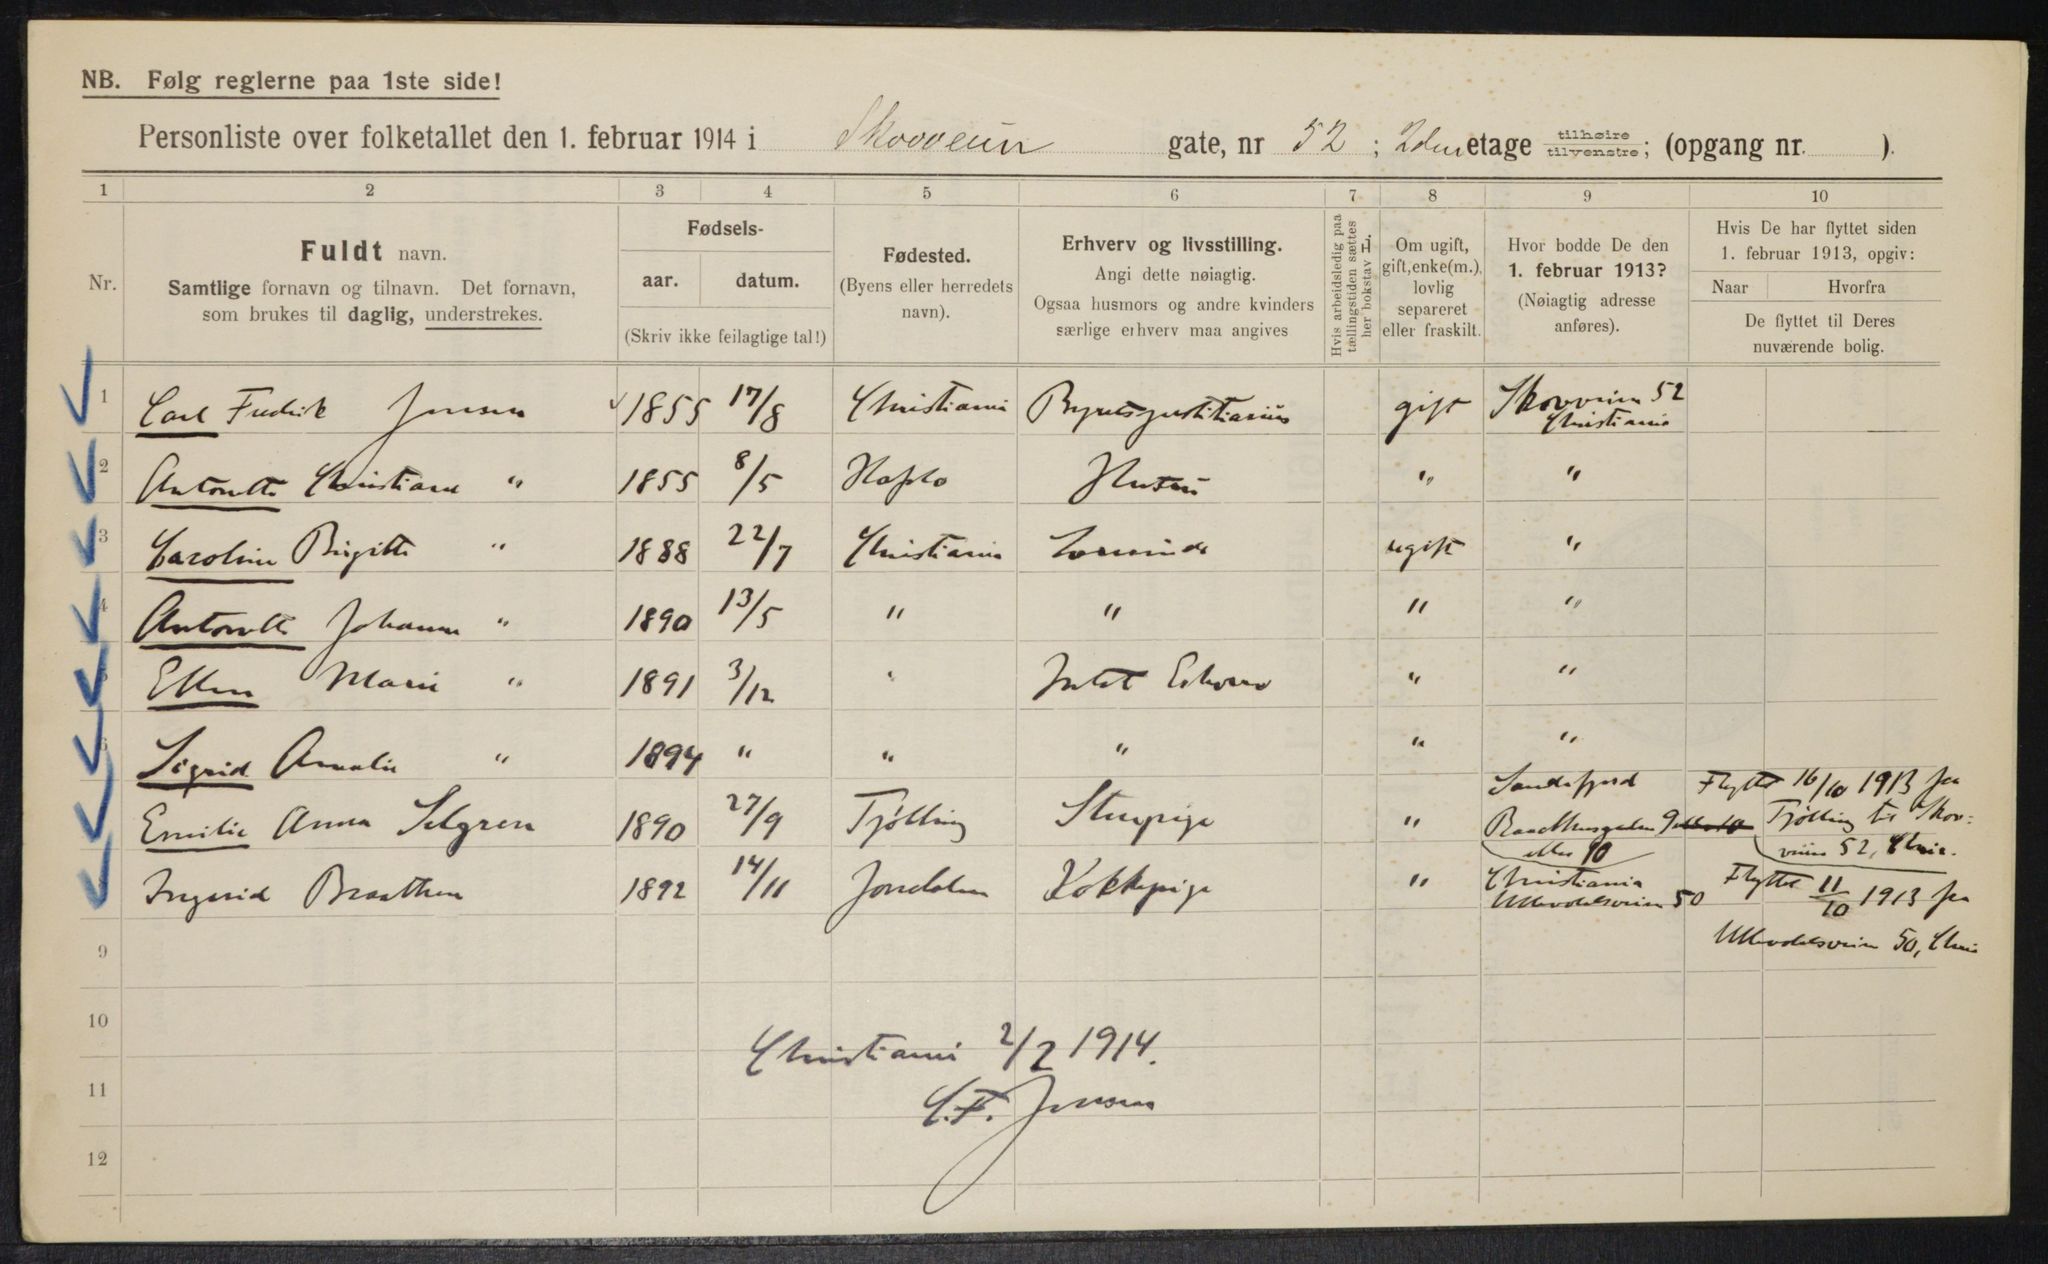 NB. Følg reglerne paa 1ste side!
Personliste over folketallet den 1. februar 1914 i Skovveien gate, nr 52; 2den etage tilhøire tilvenstre; (opgang nr. ).
1 2 3 4 5 6 7 8 9 10
Nr.
Fuldt navn.
Samtlige fornavn og tilnavn. Det fornavn,
som brukes til daglig, understrekes.
Fødsels-
aar. datum.
(Skriv ikke feilagtige tal!)
Fødested.
(Byens eller herredets
navn).
Erhverv og livsstilling.
Angi dette nøiagtig.
Ogsaa husmors og andre kvinders
særlige erhverv maa angives
Hvis arbeidsledig paa
tællingstiden sættes
her bokstav L.
Om ugift,
gift, enke(m.),
lovlig
separeret
eller fraskilt.
Hvor bodde De den
1. februar 1913?
(Nøiagtig adresse
anføres).
Hvis De har flyttet siden
1. februar 1913, opgiv:
Naar Hvorfra
De flyttet til Deres
nuværende bolig.
1 Carl Fredrik Jensen 1855 17/8 Christiania Byretsjustitiarius gift Skovveien 52
Christiania
2 Antonette Christiane " 1855 8/5 Hustru " "
3 Caroline Birgitte " 1888 22/7 Christiania ugift "
4 Antonette Johanne " 1890 13/5 " " " "
5 Ellen Marie " 1891 3/12 " Intet Erhverv " "
6 Sigrid Amalie " 1894 " " " " "
Emilie Anna Selgren 1890 27/9 Tjølling Stuepige " Sandefjord
Raadhusgaden 9
eller 10
Flyttet 16/10 1913 fra
Tjølling til Skov-
veien 52, Chria.
Ingrid Braathen 1892 14/11 Jondalen Kokkepige " Christiania
Ullevoldsveien 50
Flyttet 11/10 1913 fra
Ullevoldsveien 50, Chria
9
10
11
12
Christiania 2/2 1914.
C. F. Jensen